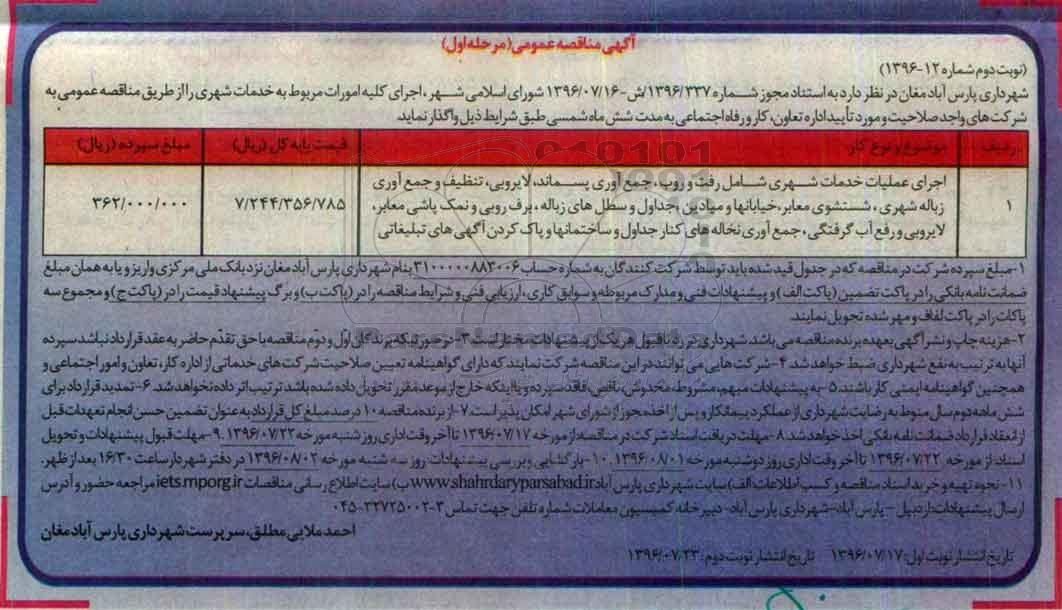 آگهی مناقصه عمومی (مرحله اول)
(نوبت دوم شماره ۱۲-۱۳۹۶)
شهرداری پارس آباد مغان در نظر دارد به استناد مجوز شماره ۱۳۹۶/۳۳۷/ش-۱۳۹۶/۰۷/۱۶ شورای اسلامی شهر، اجرای کلیه امورات مربوط به خدمات شهری را از طریق مناقصه عمومی به
شرکت های واجد صلاحیت و مورد تأیید اداره تعاون، کار و رفاه اجتماعی به مدت شش ماه شمسی طبق شرایط ذیل واگذار نماید.
ردیف موضوع و نوع کار قیمت پایه کل (ریال) مبلغ سپرده (ریال)
۱ اجرای عملیات خدمات شهری شامل رفت و روب، جمع آوری پسماند، لایروبی، تنظیف و جمع آوری
زباله شهری، شستشوی معابر، خیابانها و میادین، جداول و سطل های زباله، برف روبی و نمک پاشی معابر،
لایروبی و رفع آب گرفتگی، جمع آوری نخاله های کنار جداول و ساختمانها و پاک کردن آگهی های تبلیغاتی
۷/۲۴۴/۳۵۶/۷۸۵ ۳۶۲/۰۰۰/۰۰۰
۱-مبلغ سپرده شرکت در مناقصه که در جدول قید شده باید توسط شرکت کنندگان به شماره حساب ۳۱۰۰۰۰۰۸۸۳۰۰۶ بنام شهرداری پارس آباد مغان نزد بانک ملی مرکزی واریز و یا به همان مبلغ
ضمانت نامه بانکی را در پاکت تضمین (پاکت الف) و پیشنهادات فنی و مدارک مربوطه و سوابق کاری، ارزیابی فنی و شرایط مناقصه را در (پاکت ب) و برگ پیشنهاد قیمت را در (پاکت ج) و مجموع سه
پاکات را در پاکت لفاف و مهر شده تحویل نمایند.
۲-هزینه چاپ و نشر آگهی بعهده برنده مناقصه می باشد. شهرداری در رد یا قبول هر یک از پیشنهادات مختار است ۳-در صورتیکه برندگان اول و دوم مناقصه با حق تقدم حاضر به عقد قرارداد نباشد سپرده
آنها به ترتیب به نفع شهرداری ضبط خواهد شد. ۴-شرکت هایی می توانند در این مناقصه شرکت نمایند که دارای گواهینامه تعیین صلاحیت شرکت های خدماتی از اداره کار، تعاون و امور اجتماعی و
همچنین گواهینامه ایمنی کار باشند. ۵-به پیشنهادات مبهم، مشروط، مخدوش، ناقص، فاقد سپرده و یا اینکه خارج از موعد مقرر تحویل داده شده باشد ترتیب اثر داده نخواهد شد. ۶-تمدید قرارداد برای
شش ماهه دوم سال منوط به رضایت شهرداری از عملکرد پیمانکار و پس از اخذ مجوز از شورای شهر امکان پذیر است. ۷-از برنده مناقصه ۱۰ درصد مبلغ کل قرارداد به عنوان تضمین حسن انجام تعهدات قبل
از انعقاد قرارداد ضمانت نامه بانکی اخذ خواهد شد. ۸-مهلت دریافت اسناد شرکت در مناقصه از مورخه ۱۳۹۶/۰۷/۱۷ تا آخر وقت اداری روز شنبه مورخه ۱۳۹۶/۰۷/۲۲. ۹-مهلت قبول پیشنهادات و تحویل
اسناد: از مورخه ۱۳۹۶/۰۷/۲۲ تا آخر وقت اداری روز دوشنبه مورخه ۱۳۹۶/۰۸/۰۱. ۱۰-بازگشایی و بررسی پیشنهادات: روز سه شنبه مورخه ۱۳۹۶/۰۸/۰۲ در دفتر شهردار ساعت ۱۶/۳۰ بعد از ظهر.
۱۱-نحوه تهیه و خرید اسناد مناقصه و کسب اطلاعات: الف) سایت شهرداری پارس آباد www.shahrdaryparsabad.ir ب) سایت اطلاع رسانی مناقصات iets.mporg.ir مراجعه حضور و آدرس
ارسال پیشنهادات: اردبیل - پارس آباد - شهرداری پارس آباد - دبیرخانه کمیسیون معاملات شماره تلفن جهت تماس ۳-۳۲۷۲۵۰۰۲-۰۴۵
احمد ملایی مطلق، سرپرست شهرداری پارس آباد مغان
تاریخ انتشار نوبت اول: ۱۳۹۶/۰۷/۱۷ تاریخ انتشار نوبت دوم: ۱۳۹۶/۰۷/۲۳